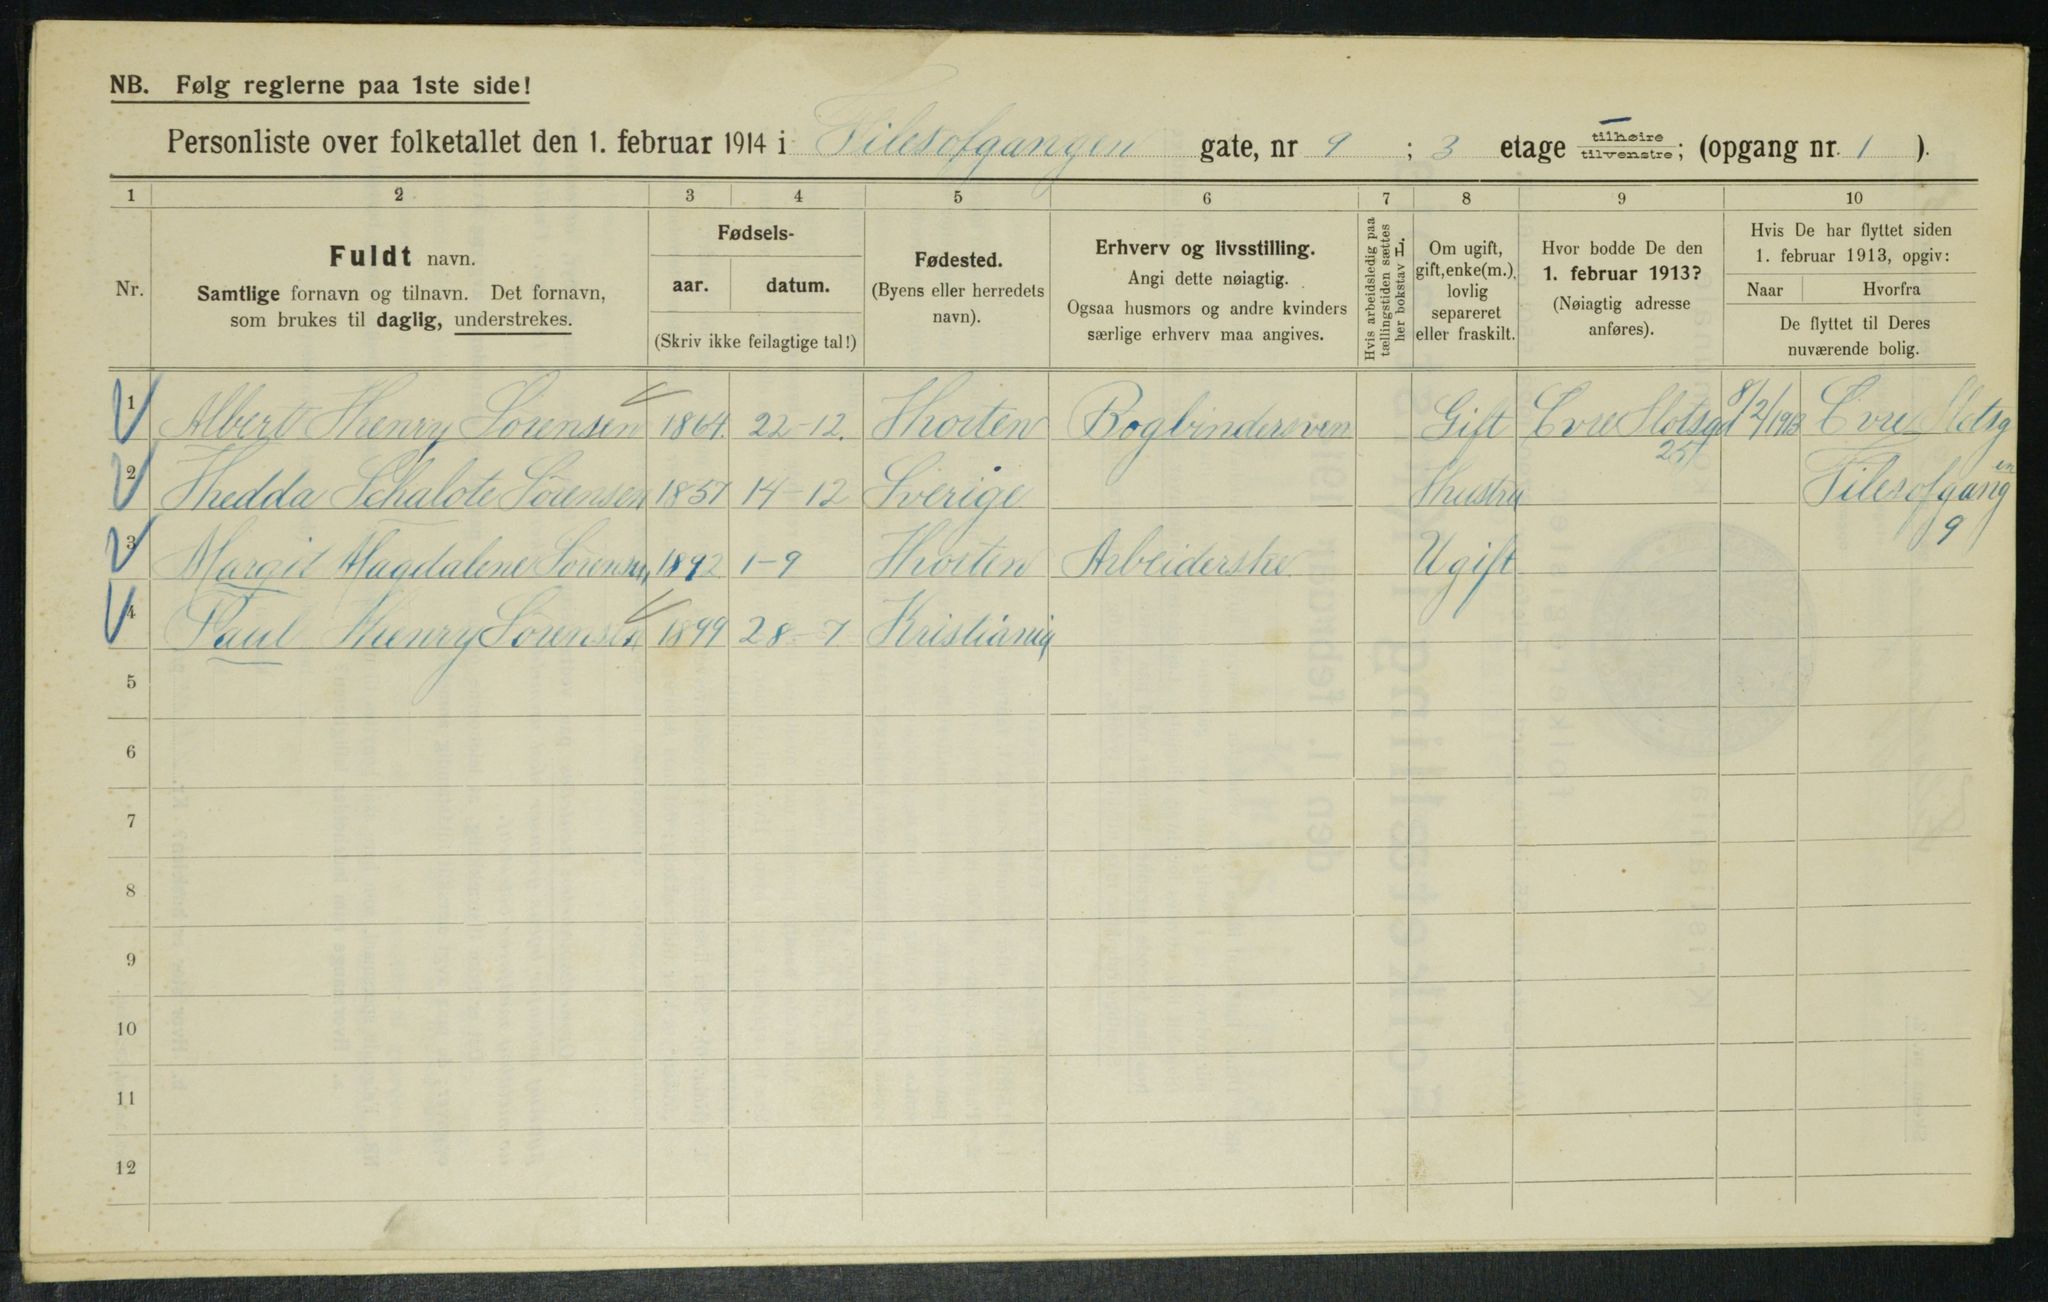 NB. Følg reglerne paa 1ste side!
Personliste over folketallet den 1. februar 1914 i Filesofgangen gate, nr 9 ; 3 etage tilhøire tilvenstre; (opgang nr. 1 ).
1 2 3 4 5 6 7 8 9 10
Nr.
Fuldt navn.
Samtlige fornavn og tilnavn. Det fornavn,
som brukes til daglig, understrekes.
Fødsels-
aar. datum.
(Skriv ikke feilagtige tal!)
Fødested.
(Byens eller herredets
navn).
Erhverv og livsstilling.
Angi dette nøiagtig.
Ogsaa husmors og andre kvinders
særlige erhverv maa angives.
Hvis arbeidsledig paa
tællingstiden sættes
her bokstav H.
Om ugift,
gift, enke(m.),
lovlig
separeret
eller fraskilt.
Hvor bodde De den
1. februar 1913?
(Nøiagtig adresse
anføres).
Hvis De har flyttet siden
1. februar 1913, opgiv:
Naar Hvorfra
De flyttet til Deres
nuværende bolig.
1 Albert Henry Sørensen 1864. 22-12. Horten Bogbindersven Gift Øvre Slotsgd 25 8/2/1913 Øvre Slotsg
2 Hedda Schalote Sørensen 1857 14-12 Sverige Hustru Filesofgangen 9
3 Margit Magdalene Sørensen 1892 1-9 Horten Arbeiderske Ugift
4 Paul Henry Sørensen 1899 28-7 Kristiania
5
6
7
8
9
10
11
12